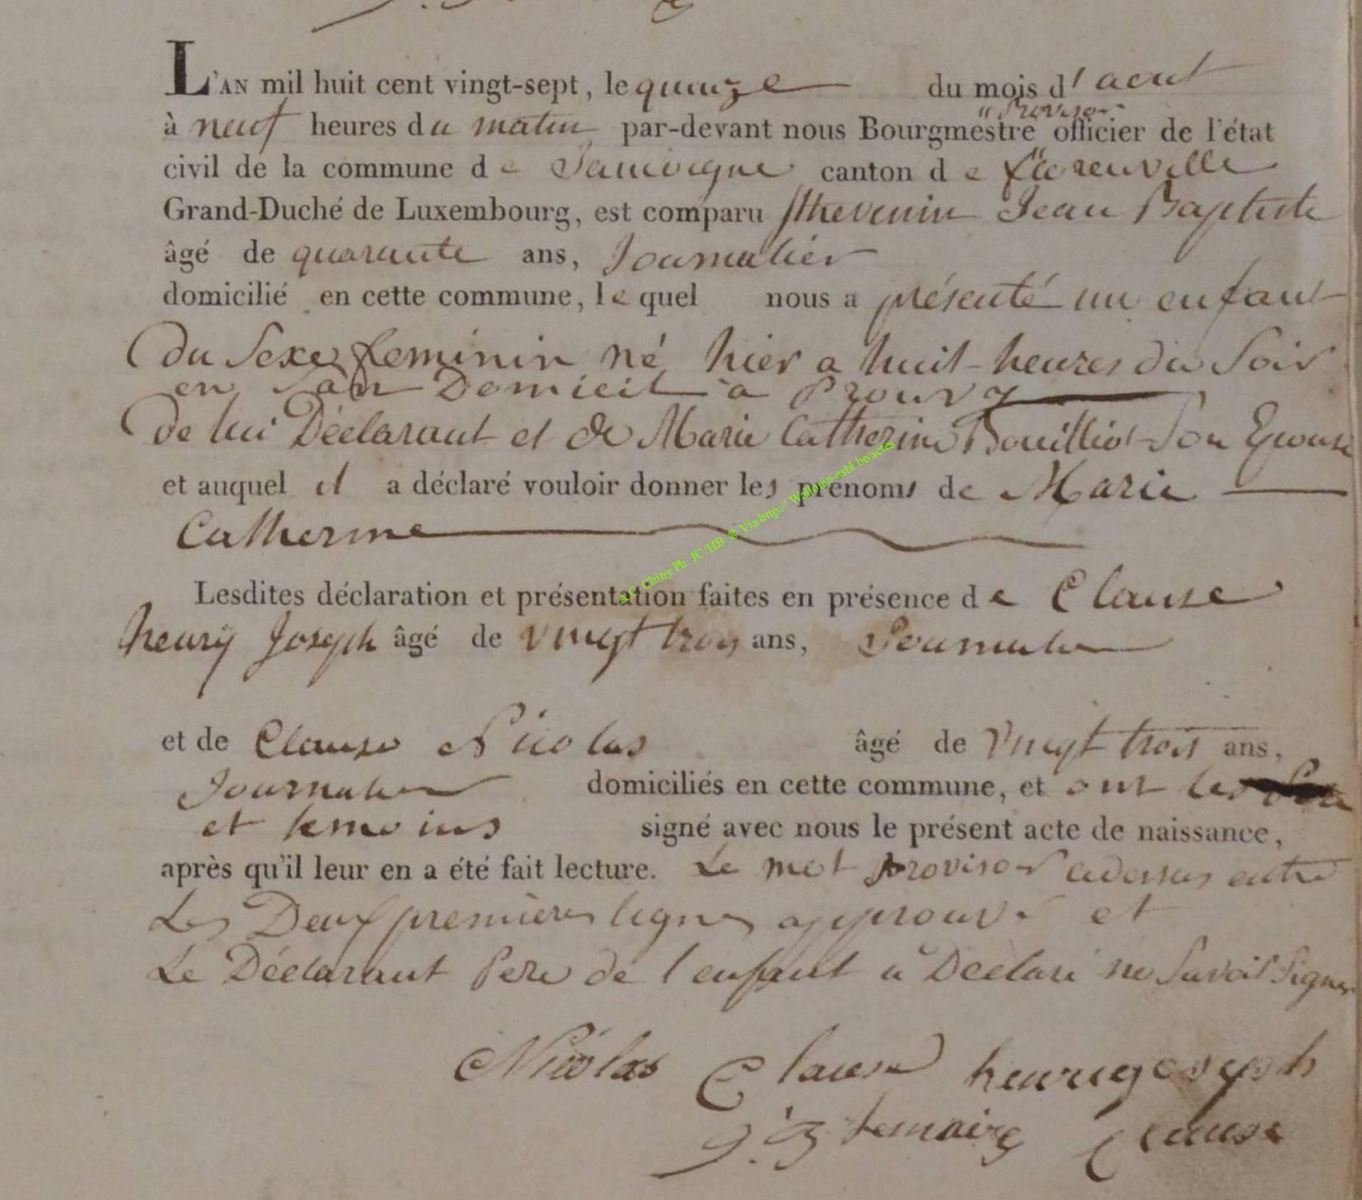 L'AN mil huit cent vingt-sept, le quinze du mois d'aout
"Proviso-r
à neuf heures du matin par-devant nous Bourgmestre officier de l'état
civil de la commune de Jamoigne canton de florenville
Grand-Duché de Luxembourg, est comparu Thevenin Jean Baptiste
âgé de quarante ans, Journalier
domicilié en cette commune, lequel nous a présenté un enfant
du Sexe feminin né hier a huit heures du Soir
en Son Domicil à Prouvy
de lui Déclarant et de Marie Catherine Bouilliot Son Epouse
et auquel il a déclaré vouloir donner les prénoms de Marie
Catherine
A.C. Chiny Ph. JC/HB © Via http:// Wallonia-asbl.be/actes
Lesdites déclaration et présentation faites en présence de Clause
henry Joseph âgé de vingt trois ans, Journalier
et de Clause Nicolas âgé de Vingt trois ans,
Journalier domiciliés en cette commune, et ont les
et temoins signé avec nous le présent acte de naissance,
après qu'il leur en a été fait lecture. Le mot provisor cidessus entre
Les Deux premieres lignes approuvé et
Le Déclarant Pere de l'enfant à Déclaré ne Savoir Signer
Nicolas Clause henry joseph
lemaire Clause